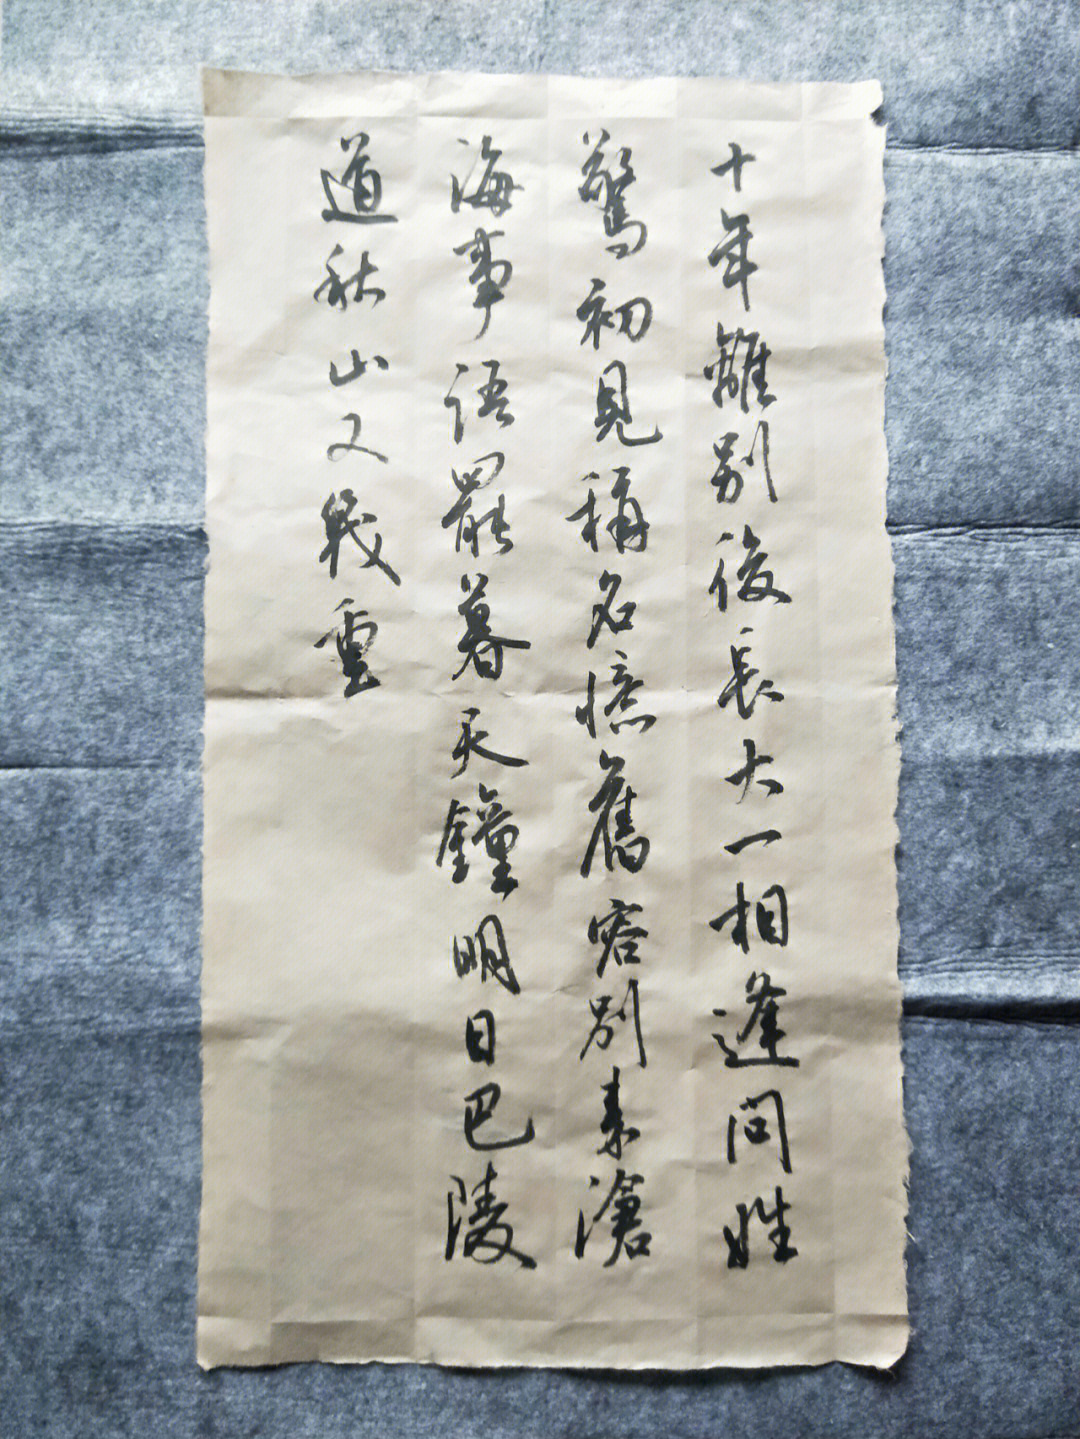 十年離别後長大一相逢問姓
驚初見稱名憶舊容别来滄
海事语罷暮天鐘明日巴陵
道秋山又幾重